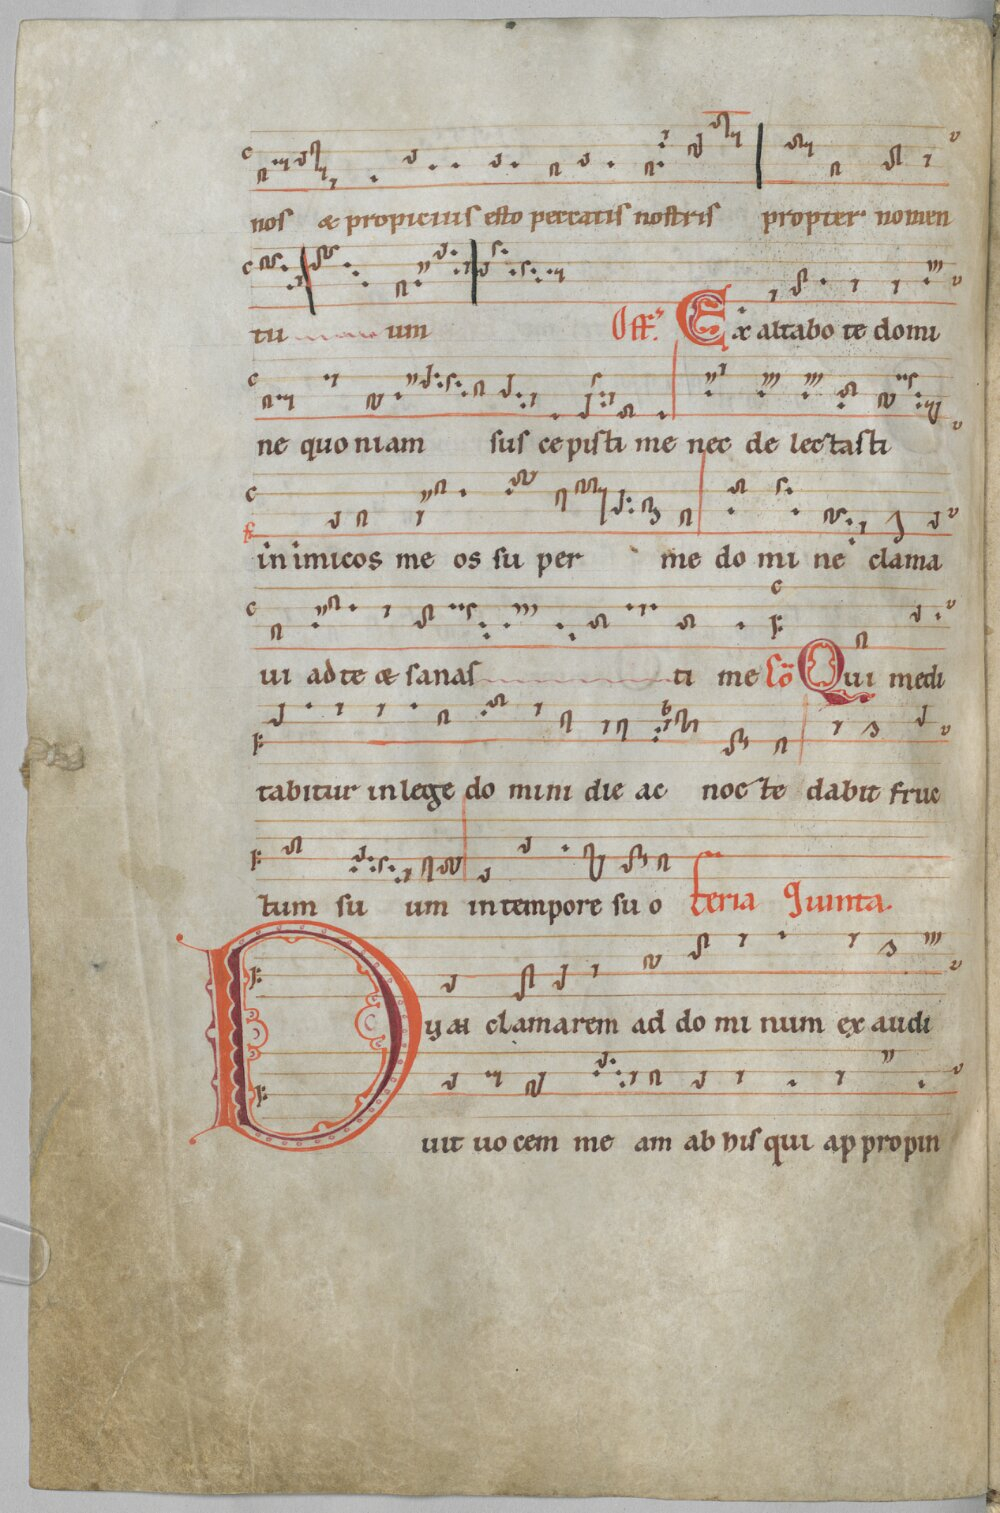 nos & propicius esto peccatis nostris propter nomen
tu um Off. Exaltabo te domi
ne quoniam sus cepisti me nec de lectasti
inimicos me os su per me do mi ne clama
ui ad te & sanas ti me Co Qui medi
tabitur in lege do mini die ac nocte dabit fruc
tum su um in tempore su o feria quinta.
Dum clamarem ad do mi num ex audi
uit uo cem me am ab his qui ap propin